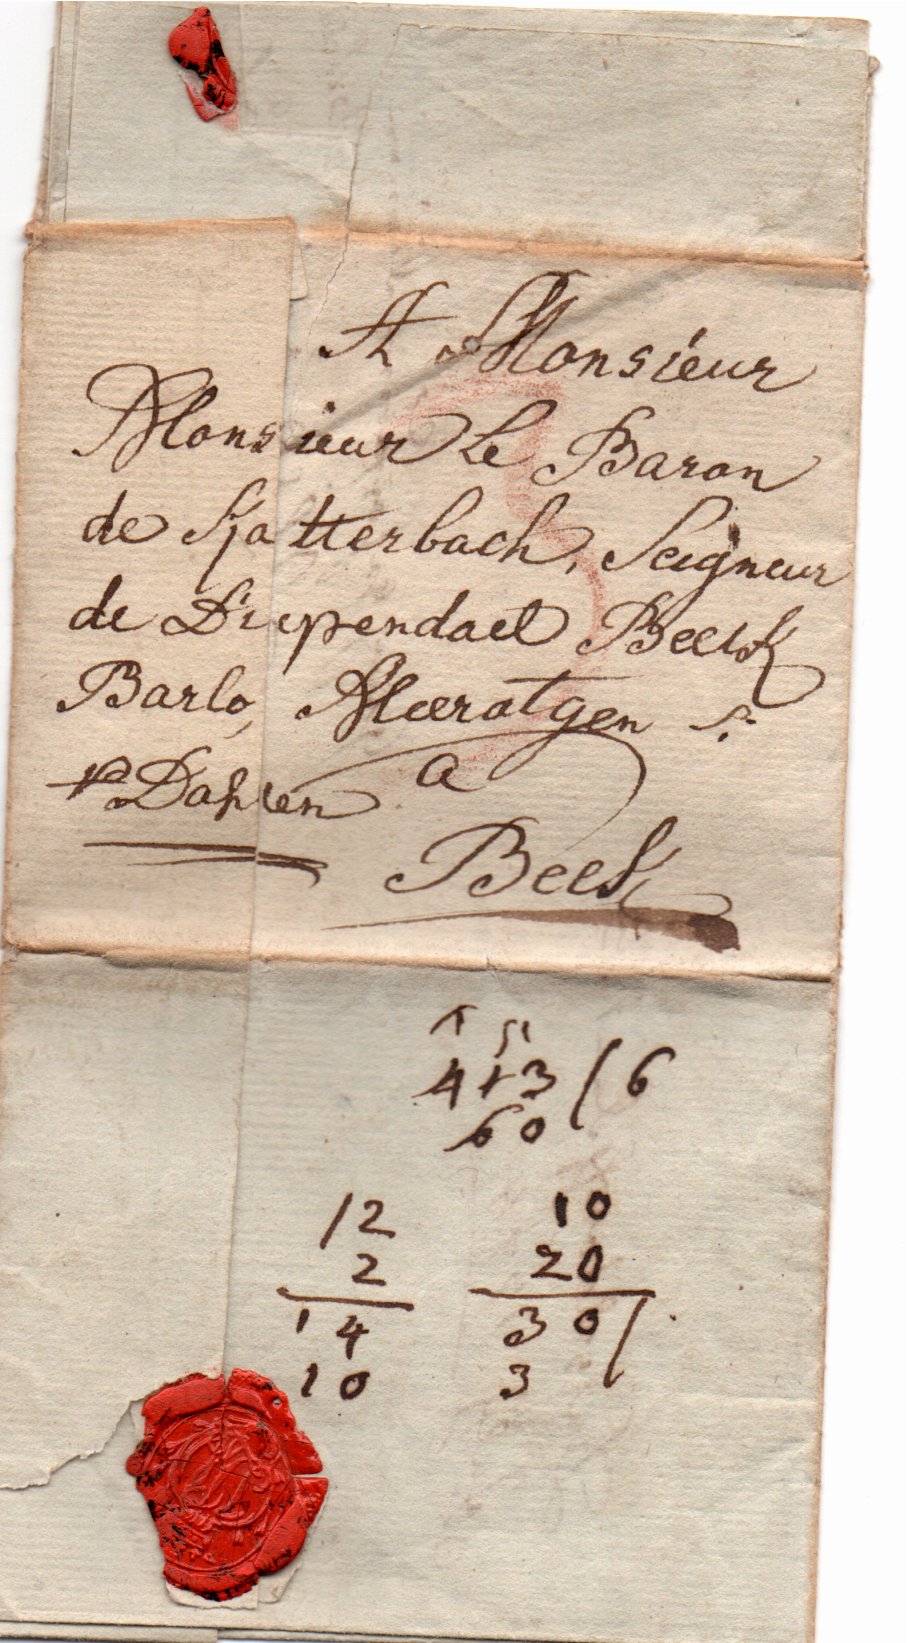 A Monsieur
Monsieur Le Baron
de Katterbach, Seigneur
de Driependael Beeck
Barlo, Meeratgen
p Dahlen a
Beek
413 ( 6
60
12 10
2 20
14 30 /
10 3